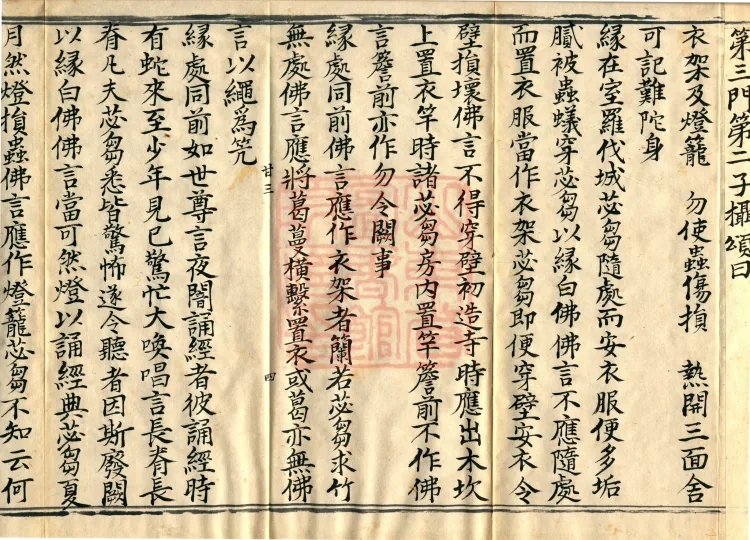 第三門第二子攝頌曰
衣架及燈籠　勿使蟲傷損　熱開三面舍
可記難陀身
緣在室羅伐城苾芻隨處而安衣服便多垢
膩被蟲蟻穿苾芻以緣白佛佛言不應隨處
而置衣服當作衣架苾芻即便穿壁安衣令
壁損壞佛言不得穿壁初造寺時應出木坎
上置衣竿時諸苾芻房內置竿簷前不作佛
言簷前亦作勿令闕事
緣處同前佛言應作衣架者蘭若苾芻求竹
無處佛言應將葛蔓橫繫置衣或葛亦無佛
言以繩為笐
廿三
四
緣處同前如世尊言夜闇誦經者彼誦經時
有蛇來至少年見已驚忙大喚唱言長脊長
脊凡夫苾芻悉皆驚怖遂令聽者因斯廢闕
以緣白佛佛言當可然燈以誦經典苾芻夏
月然燈損蟲佛言應作燈籠苾芻不知云何